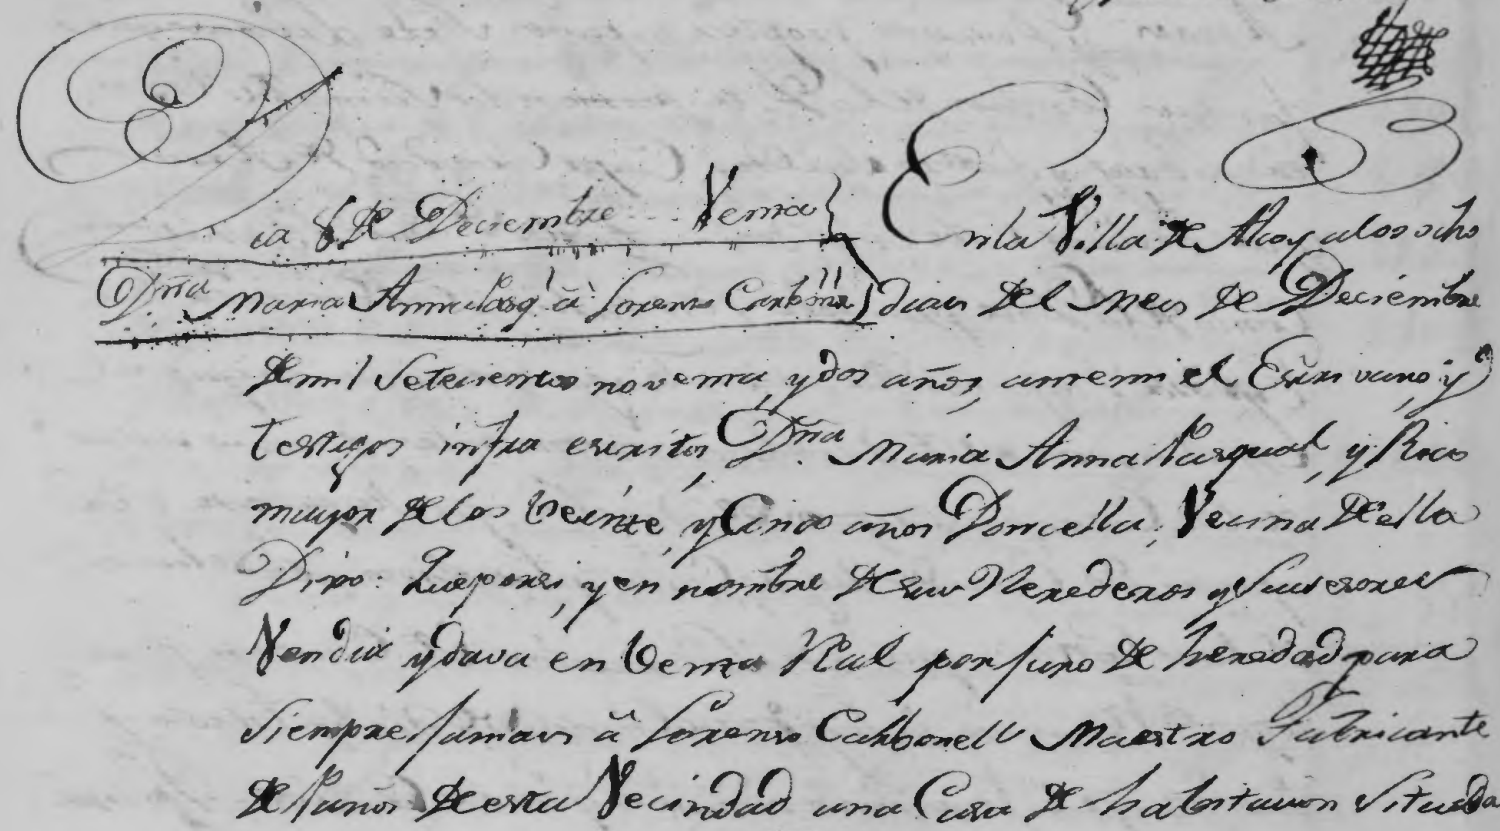 Dia 8 de Deciembre Venta
Dña Maria Anna Pasql â Lorenzo Carbonl
En la Villa de Alcoy alos ocho
dias del Mes de Deciembre
de mil Setecientos noventa, y dos años, antemi el Essno vano, y
Testigos infra escritos, Dña Maria Anna Pasqual, y Rico
mayor de los Veinte, y Cinco años Doncella, Vecina de ella
Dixo: Que por si, y en nombre de sus Herederos y Sucesores
Vendia y dava en Venta Real por Juro de heredad para
Siempre Jamas â Lorenzo Carbonell Maestro Fabricante
de Paños de esta Vecindad una Casa de habitacion Situada